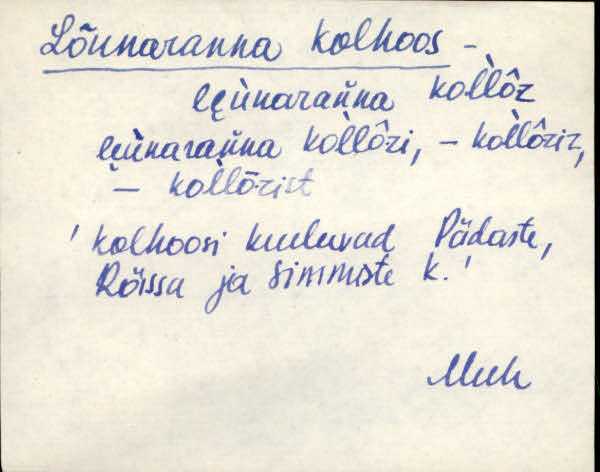 Lõunaranna kolhoos -
lęụ̀naran̆na kol̀lôz
lęụ̀naran̆na kol̀lôzi, - kol̀lôziz,
- kol̀lôzist
' kolhoosi kuuluvad Pädaste,
Rõissa ja Simmiste k.'
Muh